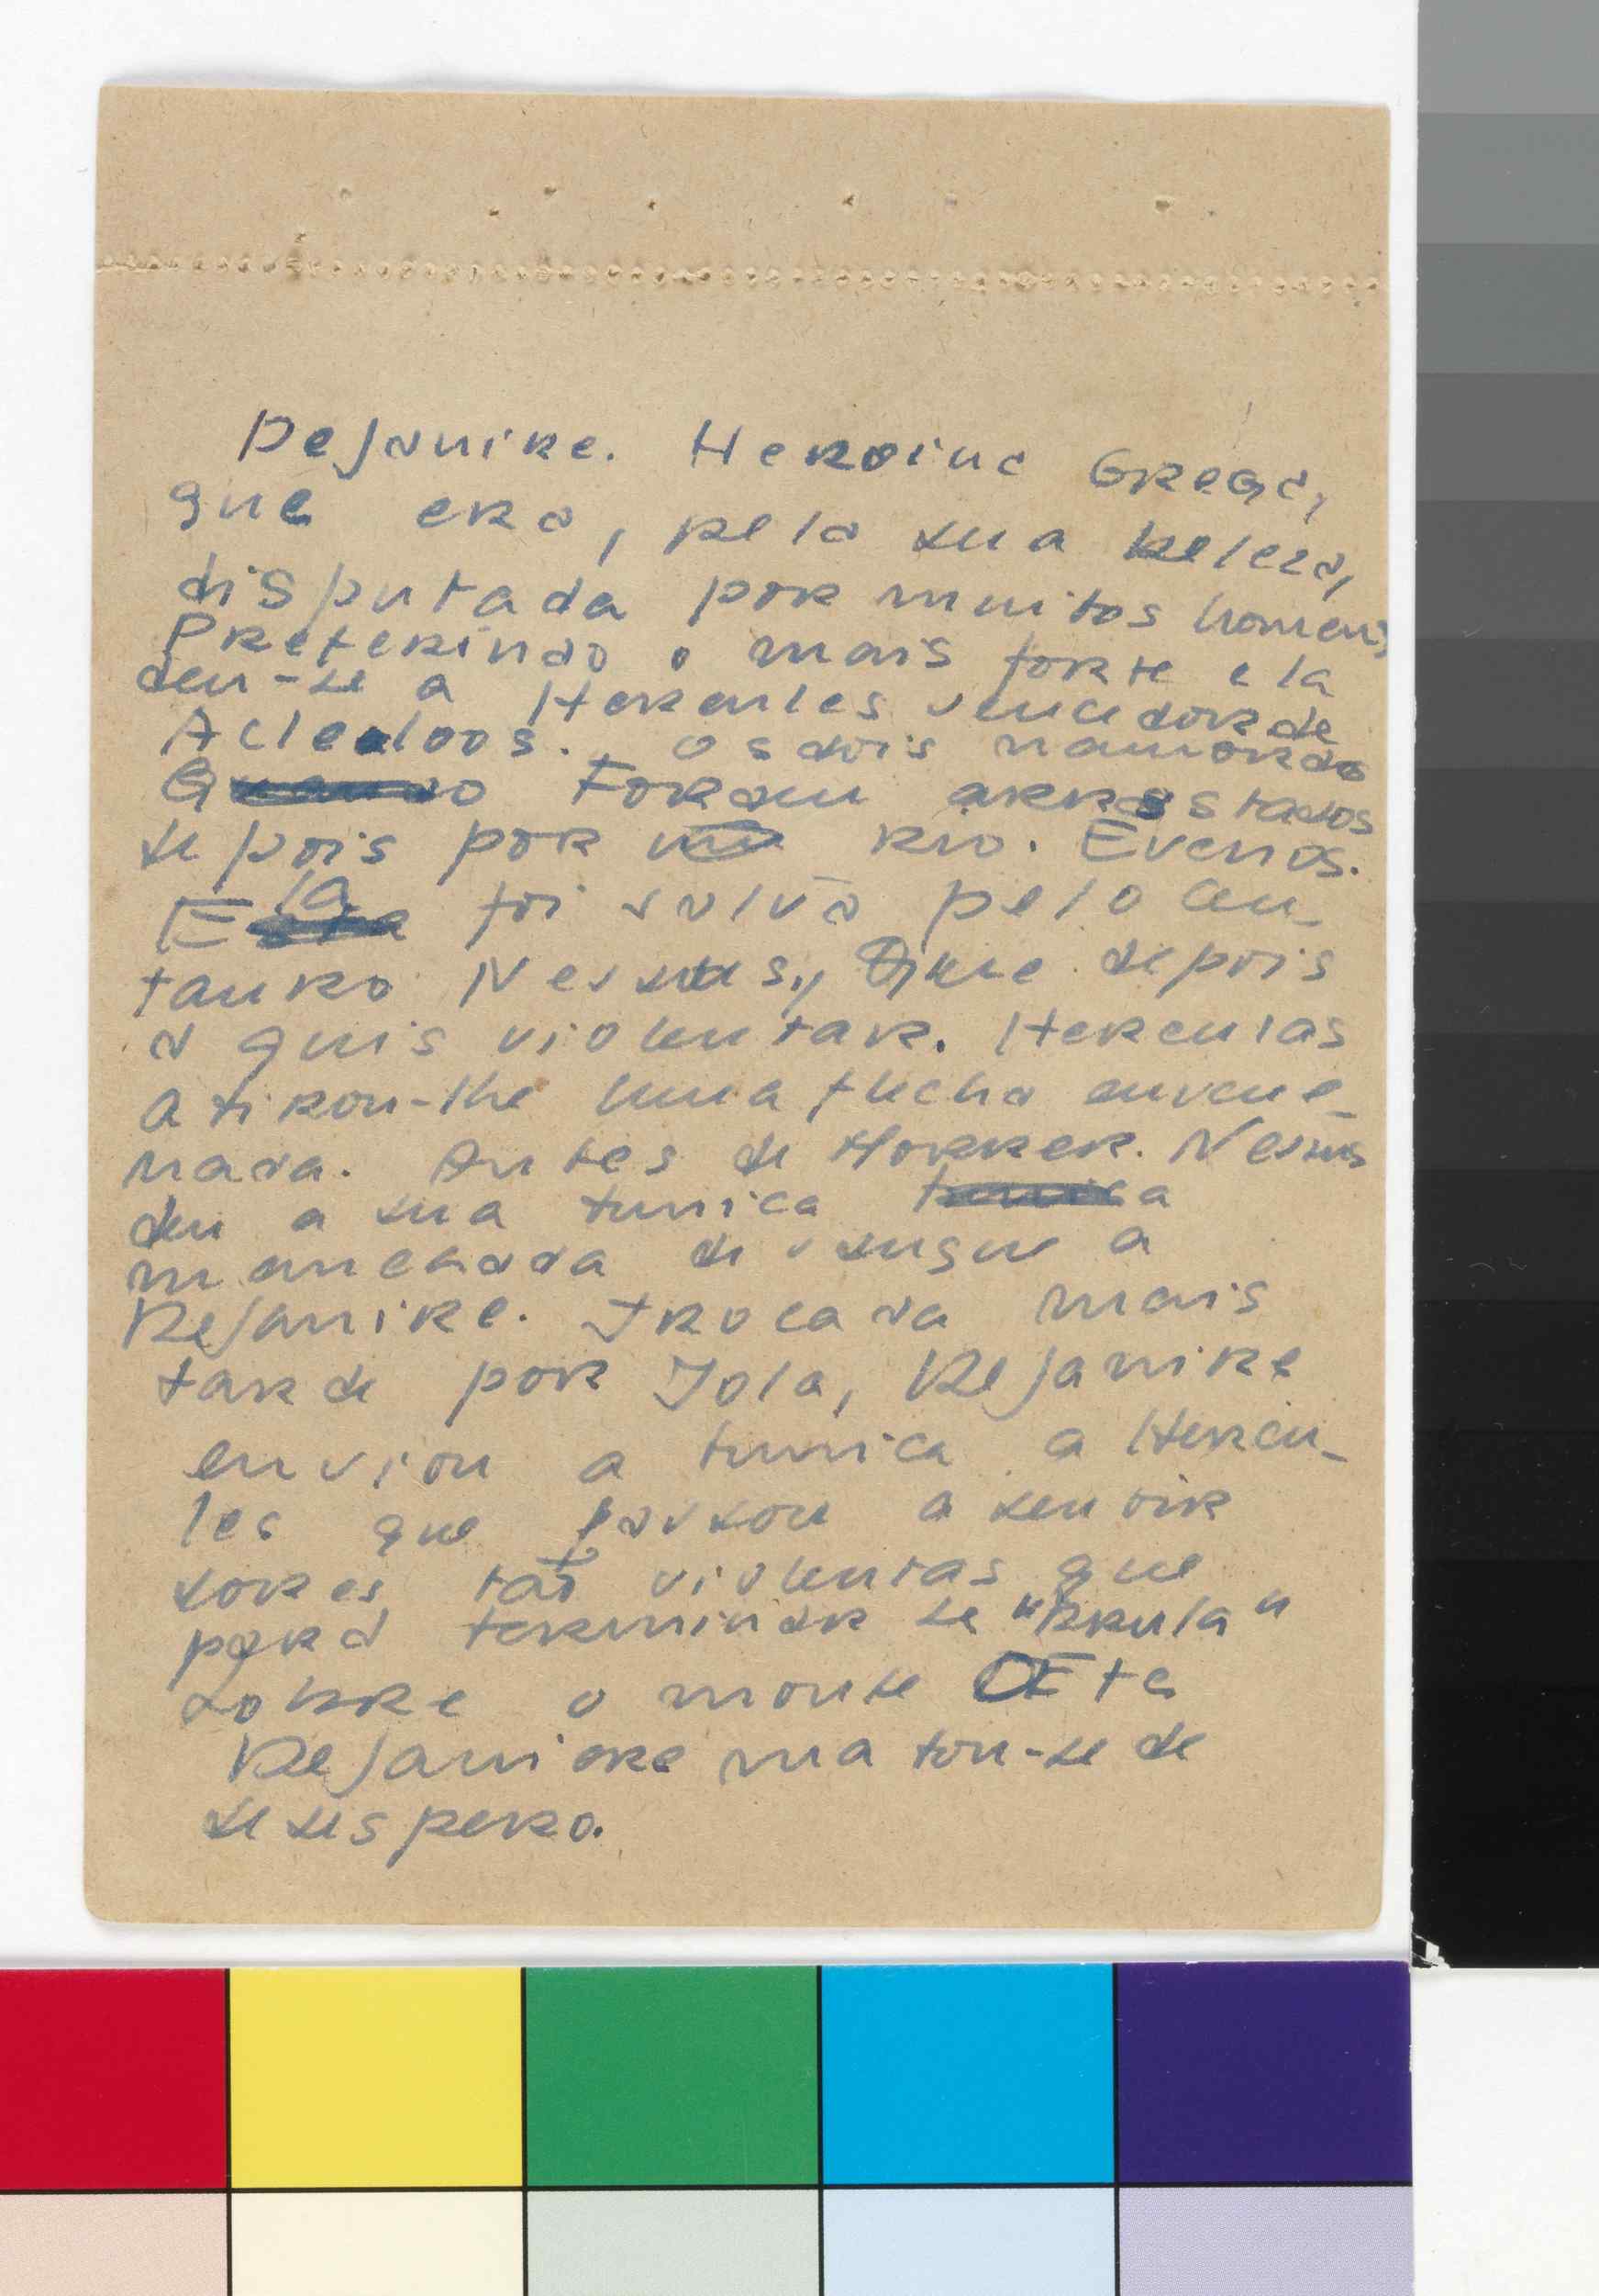 Dejanire. Heroina Grega,
que era, pela sua beleza,
disputada por muitos homens,
Preferindo o mais forte ela
deu-se a Hercules vencedor de
Os dois namorados
Quando Foram arrastados
depois por um rio. Evenos.
Ela foi salva pelo cen-
tauro Nessus, que depois
a quis violentar. Herculas
atirou-lhe uma flecha envene-
nada. Antes de Morrer. Nessus
deu a sua tunica tunica
manchada de sangue a
Dejanire. Trocada mais
tarde por Iola, Dejanire
enviou a tunica a Hercu-
les que passou a sentir
dores tão violentas que
para terminar se "brula"
sobre o monte OEta
Dejaniere matou-se de
desespero.